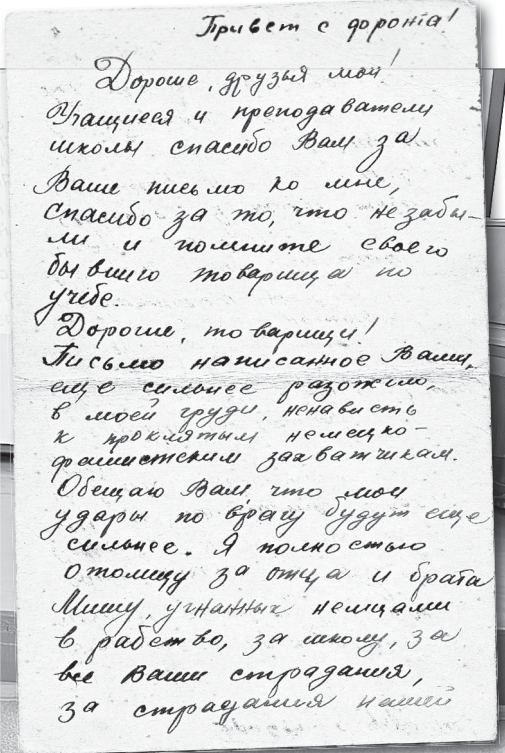 Привет с фронта!
Дорогие, друзья мои!
Учащиеся и преподаватели
школы спасибо Вам за
Ваше письмо ко мне,
спасибо за то, что незабы-
ли и помните своего
бывшего товарища по
учебе.
Дорогие, товарищи!
Письмо написанное Вами,
еще сильнее разожгло,
в моей груди, ненависть
к проклятым немецко-
фашистским захватчикам.
Обещаю Вам, что мои
удары по врагу будут еще
сильнее. Я полностью
отомщу за отца и брата
Мишу, угнанных немцами
в рабство, за школу, за
все Ваши страдания,
за страдания нашей